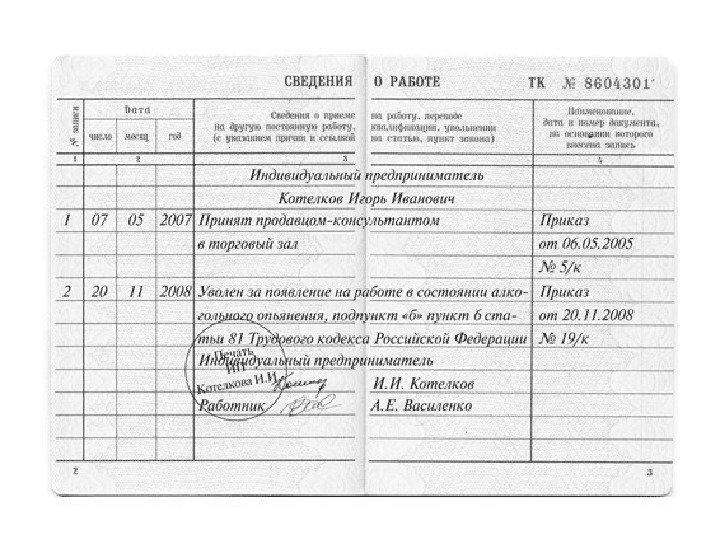 СВЕДЕНИЯ О РАБОТЕ ТК № 8604301
№ записи
Дата
число месяц год
Сведения о приеме на работу, переводе
на другую постоянную работу, квалификации, увольнении
(с указанием причин и ссылкой на статью, пункт закона)
Наименование,
дата и номер документа,
на основании которого
внесена запись
1 2 3 4
Индивидуальный предприниматель
Котелков Игорь Иванович
1 07 05 2007 Принят продавцом-консультантом Приказ
в торговый зал от 06.05.2005
№ 5/к
2 20 11 2008 Уволен за появление на работе в состоянии алко- Приказ
гольного опьянения, подпункт «б» пункт 6 ста- от 20.11.2008
тьи 81 Трудового кодекса Российской Федерации № 19/к
Индивидуальный предприниматель
Печать
ИП
Котелкова И.И.
И.И. Котелков
Работник А.Е. Василенко
2 3